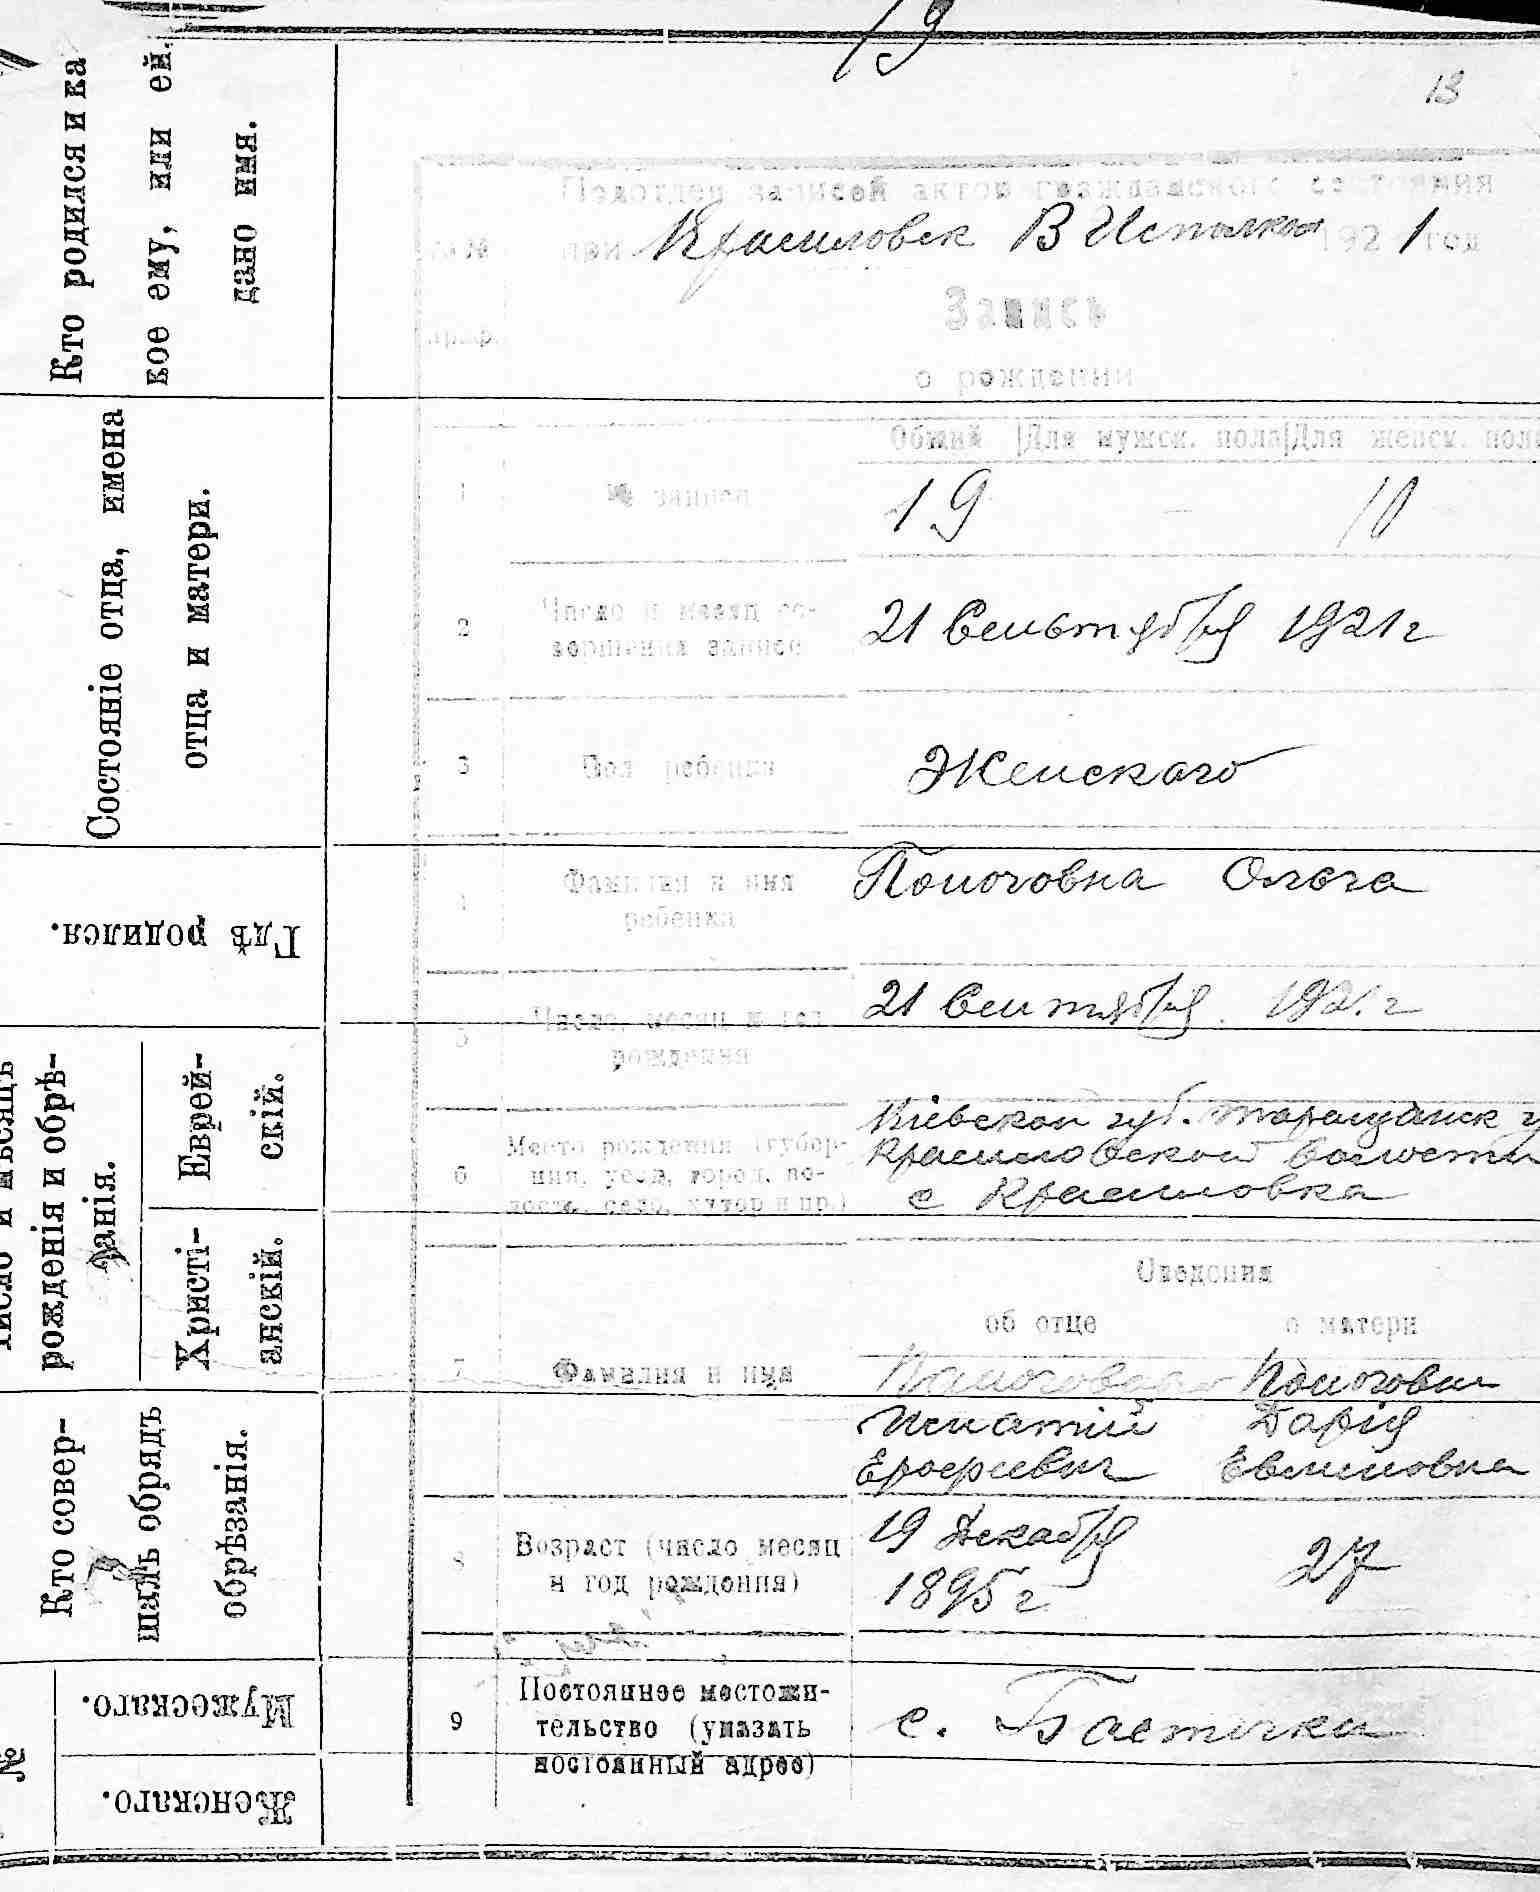 19
13
Кто родился и ка
кое ему, или ей.
дано имя.
Состояніе отца, имена
отца и матери.
Гдѣ родился.
рожденія и обрѣ-
занія.
Еврей-
скій.
Христі-
анскій.
Кто совер-
шалъ обрядъ
обрѣзанія.
№
Мужескаго.
Женскаго.
Подотдел записей актов гражданского состояния
при В Исполком 1921 год
Запись
о рождении
Общий Для мужск. пола Для женск. пола
1 № записи 19 — 10
2 Число и месяц со-
вершения записи
21 Сентября 1921 г
3 Пол ребенка Женскаго
4 Фамилия и имя
ребенка
Ольга
5 Число, месяц и год
рождения
21 Сентября 1921 г
6 Место рождения (губер-
ния, уезд, город, во-
лость, село, хутор и пр.)
Кіевской губ.
волости
с
Сведения
об отце о матери
7 Фамилия и имя
Игнатій Дарія
8 Возраст (число месяц
и год рождения)
19 Декабря
1895 г
27
9 Постоянное местожи-
тельство (указать
постоянный адрес)
с.